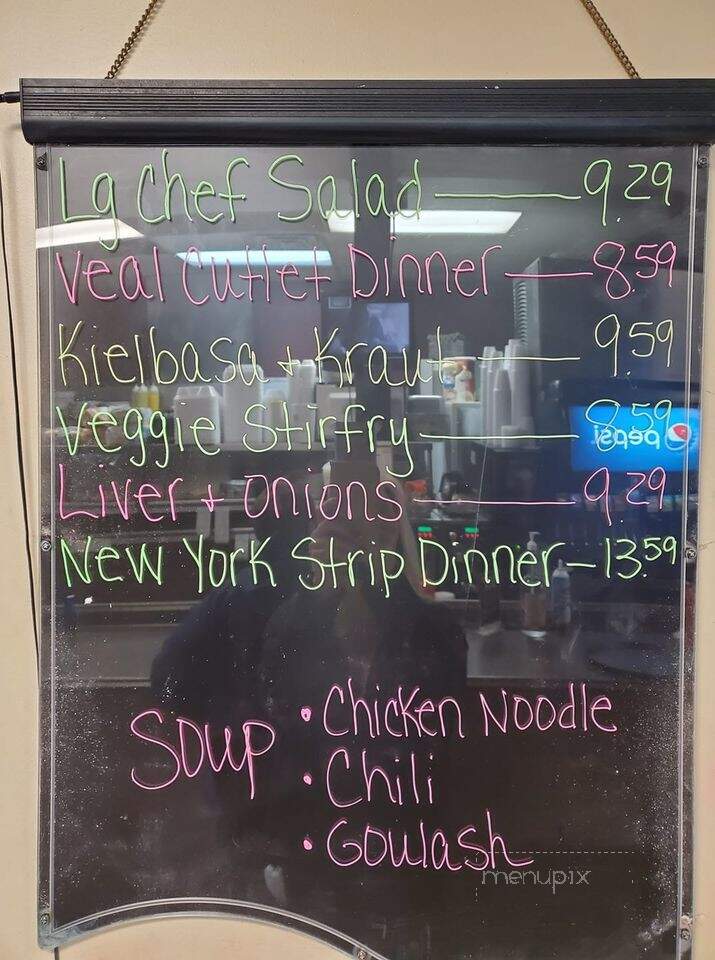 Lg Chef Salad — 9.29
Veal Cutlet Dinner — 8.59
Kielbasa + Kraut — 9.59
Veggie Stirfry — 8.59
pepsi
Liver + onions — 9.29
New York Strip Dinner — 13.59
Soup • Chicken Noodle
• Chili
• Goulash
menupix